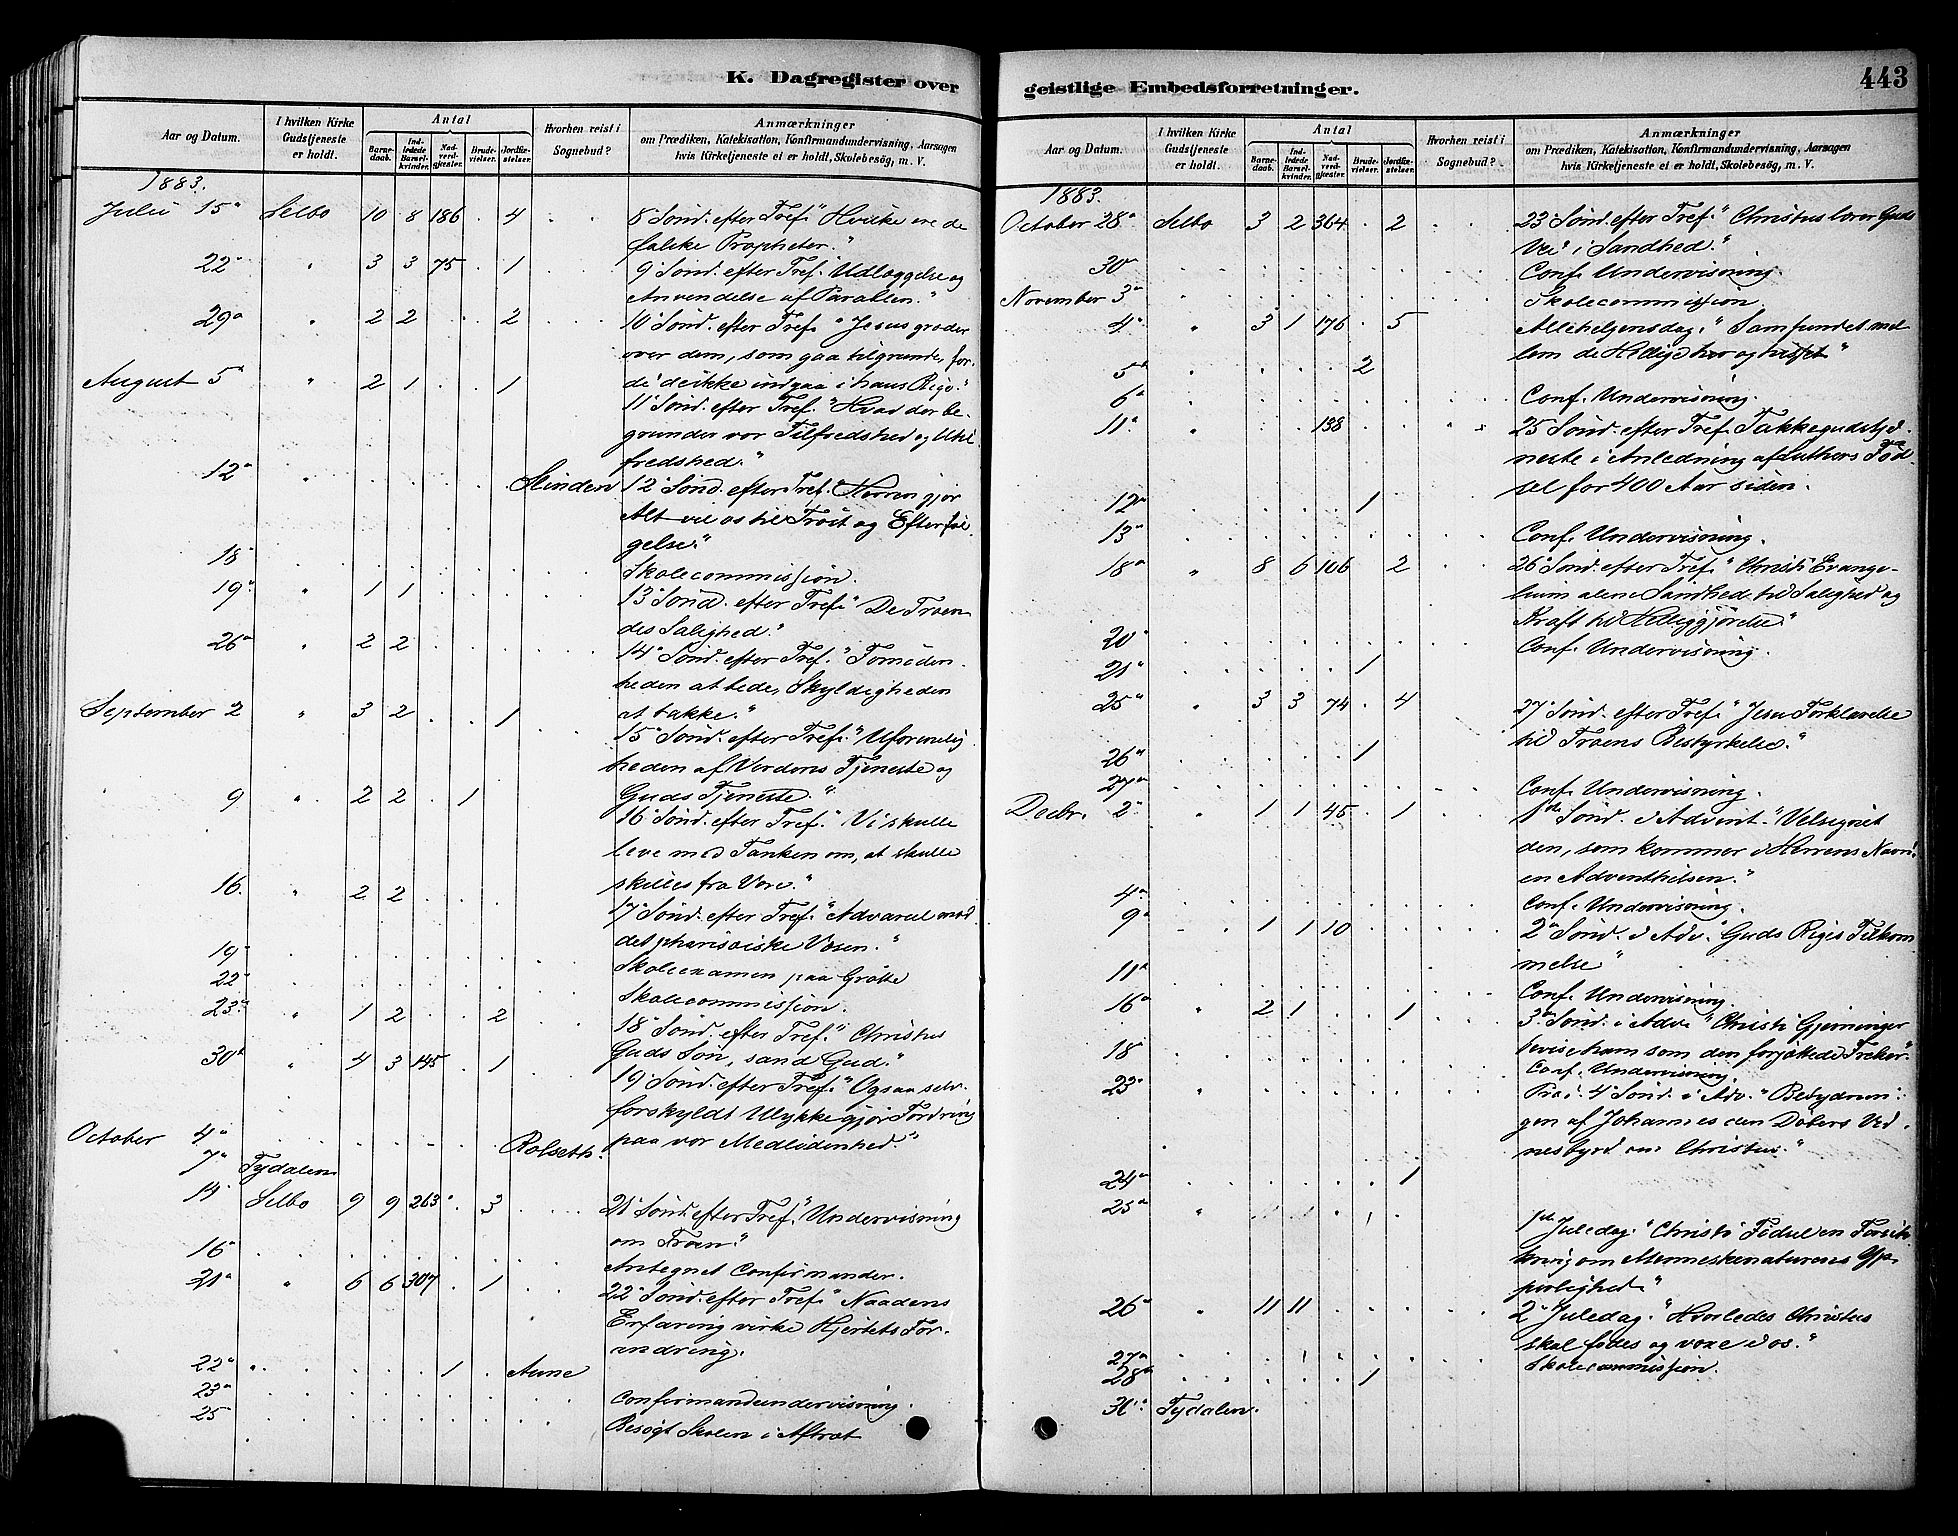 K. Dagregister over
Aar og Datum.
I hvilken Kirke Gudstjeneste er holdt.
Antal
Barnedaab.
Indledede Barselkvinder.
Nadverdgjester.
Brudevielser.
Jordfæstelser.
Hvorhen reist i Sognebud?
Anmærkninger
om Prædiken, Katekisation, Konfirmandundervisning, Aarsagen
hvis Kirketjeneste ei er holdt, Skolebesög, m. V.
1883.
Juli 15 Selbo 10 8 186 . 4 8 Sønd. efter Tref. "Hvilke ere de
falske Propheter."
22 " 3 3 75 . 1 9 Sønd. efter Tref. "Udlæggelse og
Anvendelse af Parablen."
29 " 2 2 . . 2 10 Sønd. efter Tref. "Jesus græder
over dem, som gaa tilgrunde, for-
August 5 " 2 1 . . 1 di de ikke indgaa i hans Rige."
11 Sønd. efter Tref. "Hvad der be-
grunder vor Tilfredshed og Util-
fredshed."
12 " Slinden 12 Sønd. efter Tref. "Herren gjør
Alt vel os til Trøst og Efterføl-
gelse."
18 Skolecommission.
19 " 1 1 13 Sønd. efter Tref. "De Troen-
des Salighed."
26 " 2 2 14 Sønd. efter Tref.
heden at bede, Skyldigheden
September 2 " 3 2 . . 1 at takke."
15 Sønd. efter Tref. "Uforenelig-
heden af Verdens Tjeneste og
9 " 2 2 . 1 Guds Tjeneste."
16 Sønd. efter Tref. "Vi skulle
leve med Tanken om, at skulle
16. " 2 2 skilles fra Vore."
17 Sønd. efter Tref. "Advarsel mod
det pharisæiske Væsen."
19 Skoleexamen paa Grøtte
22 Skolecommission.
23 " 1 2 . . 2 18 Sønd. efter Tref. "Christus
Guds Søn, sand Gud."
30 " 4 3 145 . 1 19 Sønd. efter Tref. "Ogsaa selv-
forskyldt Ulykke gjør Fordring
October 4 Rolseth. paa vor Medlidenhed"
7 Tydalen
14 Selbo 9 9 263 . 3 21 Sønd. efter Tref. "Undervisning
om Troen."
16 Antegnet Confirmander.
21 " 6 6 307 . 1 22 Sønd. efter Tref. "Naadens
Erfaring virke Hjertets For-
andring.
22 " 1 . Aune
23 Confirmandundervisning.
25 Besøgt Skolen i Aftret
geistlige Embedsforretninger.
443
Aar og Datum.
I hvilken Kirke Gudstjeneste er holdt.
Antal
Barnedaab.
Indledede Barselkvinder.
Nadverdgjester.
Brudevielser.
Jordfæstelser.
Hvorhen reist i Sognebud?
Anmærkninger
om Prædiken, Katekisation, Konfirmandundervisning, Aarsagen
hvis Kirketjeneste ei er holdt, Skolebesög, m. V.
1883.
October 28 Selbo 3 2 364 . 2 23 Sønd. efter Tref. "Christus lærer Guds
Vei i Sandhed."
30 Conf. Undervisning.
November 3 Skolecommission.
4 " 3 1 176 . 5 Allehelgensdag. "Samfundet mel-
lem de Hellige her og hisset"
5 " 2
6 Conf. Undervisning.
11 " 138 25 Sønd. efter Tref. Takkegudstje-
neste i Anledning af Luthers Fød-
sel for 400 Aar siden.
12 1
13 Conf. Undervisning.
18 " 8 6 106 . 2 26 Sønd. efter Tref. "Christi Evange-
lium alene Sandhed til Salighed og
Kraft til Helliggjørelse."
20 Conf. Undervisning.
21 1
25 " 3 3 74 . 4 27 Sønd. efter Tref. "Jesu Forklarelse
til Troens Bestyrkelse."
26 1
27 Conf. Undervisning.
Decbr. 2 " 1 1 45 . 1 1ste Sønd. i Advent. "Velsignet
den, som kommer i Herrens Navn!
en Adventhilsen."
4 Conf. Undervisning.
9 1 1 10 2 Sønd. i Adv. "Guds Riges Tilkom-
melse"
11 Conf. Undervisning.
16 " 2 1 . . 1 3 Sønd. i Adv. "Christi Gjerninger
bevise ham som den forjættede Frelser."
18 Conf. Undervisning.
23 " Præ. 4 Sønd. i Adv. "Betydnin-
gen af Johannes den Døbers Vid-
nesbyrd om Christus."
24 1
25 " 1ste Juledag. "Christi Fødsel en
om Menneskenaturens
26 " 11 11 2 Juledag. "Hvorledes Christus
skal fødes og voxe i os."
27 Skolecommission.
28 1
30 Tydalen.